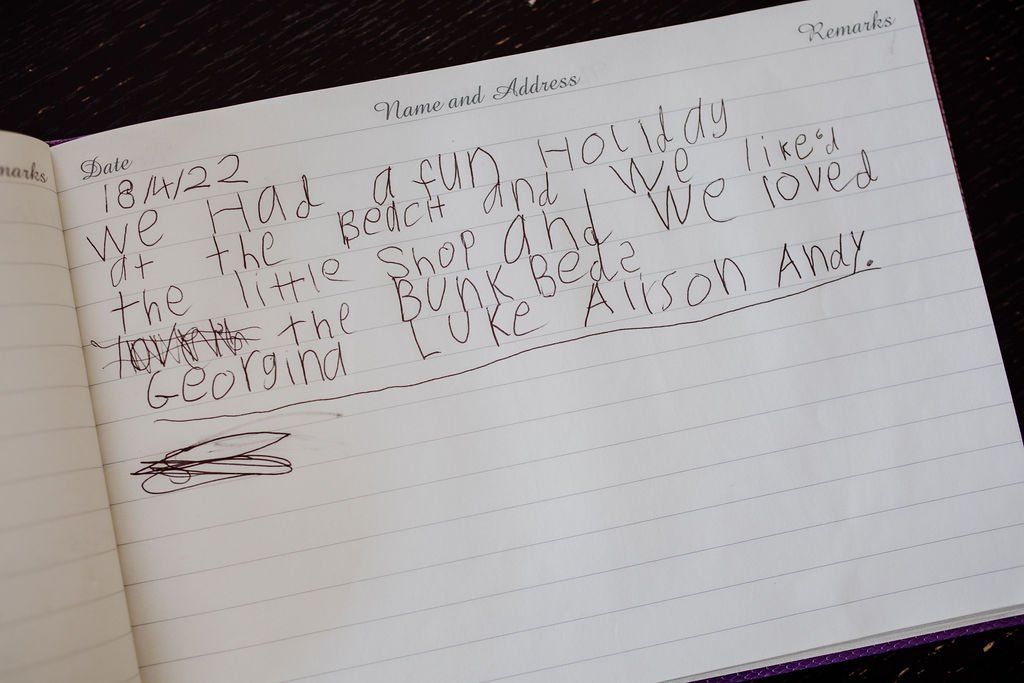 marks
Remarks
Name and Address
Date
18/4/22
We Had a fun Holiddy
at the Beach and We like'd
the little Shop and We loved
the Bunk Beds
Georgina Luke Alison Andy.